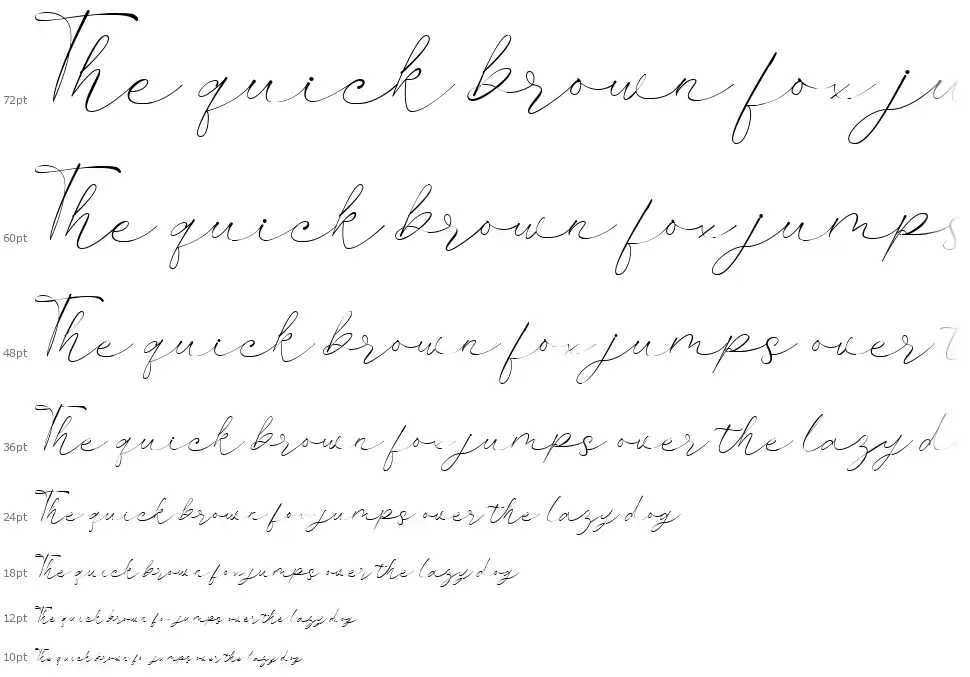 72pt The quick brown fox ju
60pt The quick brown fox jumps
48pt The quick brown fox jumps over t
36pt The quick brown fox jumps over the lazy d
24pt The quick brown fox jumps over the lazy dog
18pt The quick brown fox jumps over the lazy dog
12pt The quick brown fox jumps over the lazy dog
10pt The quick brown fox jumps over the lazy dog